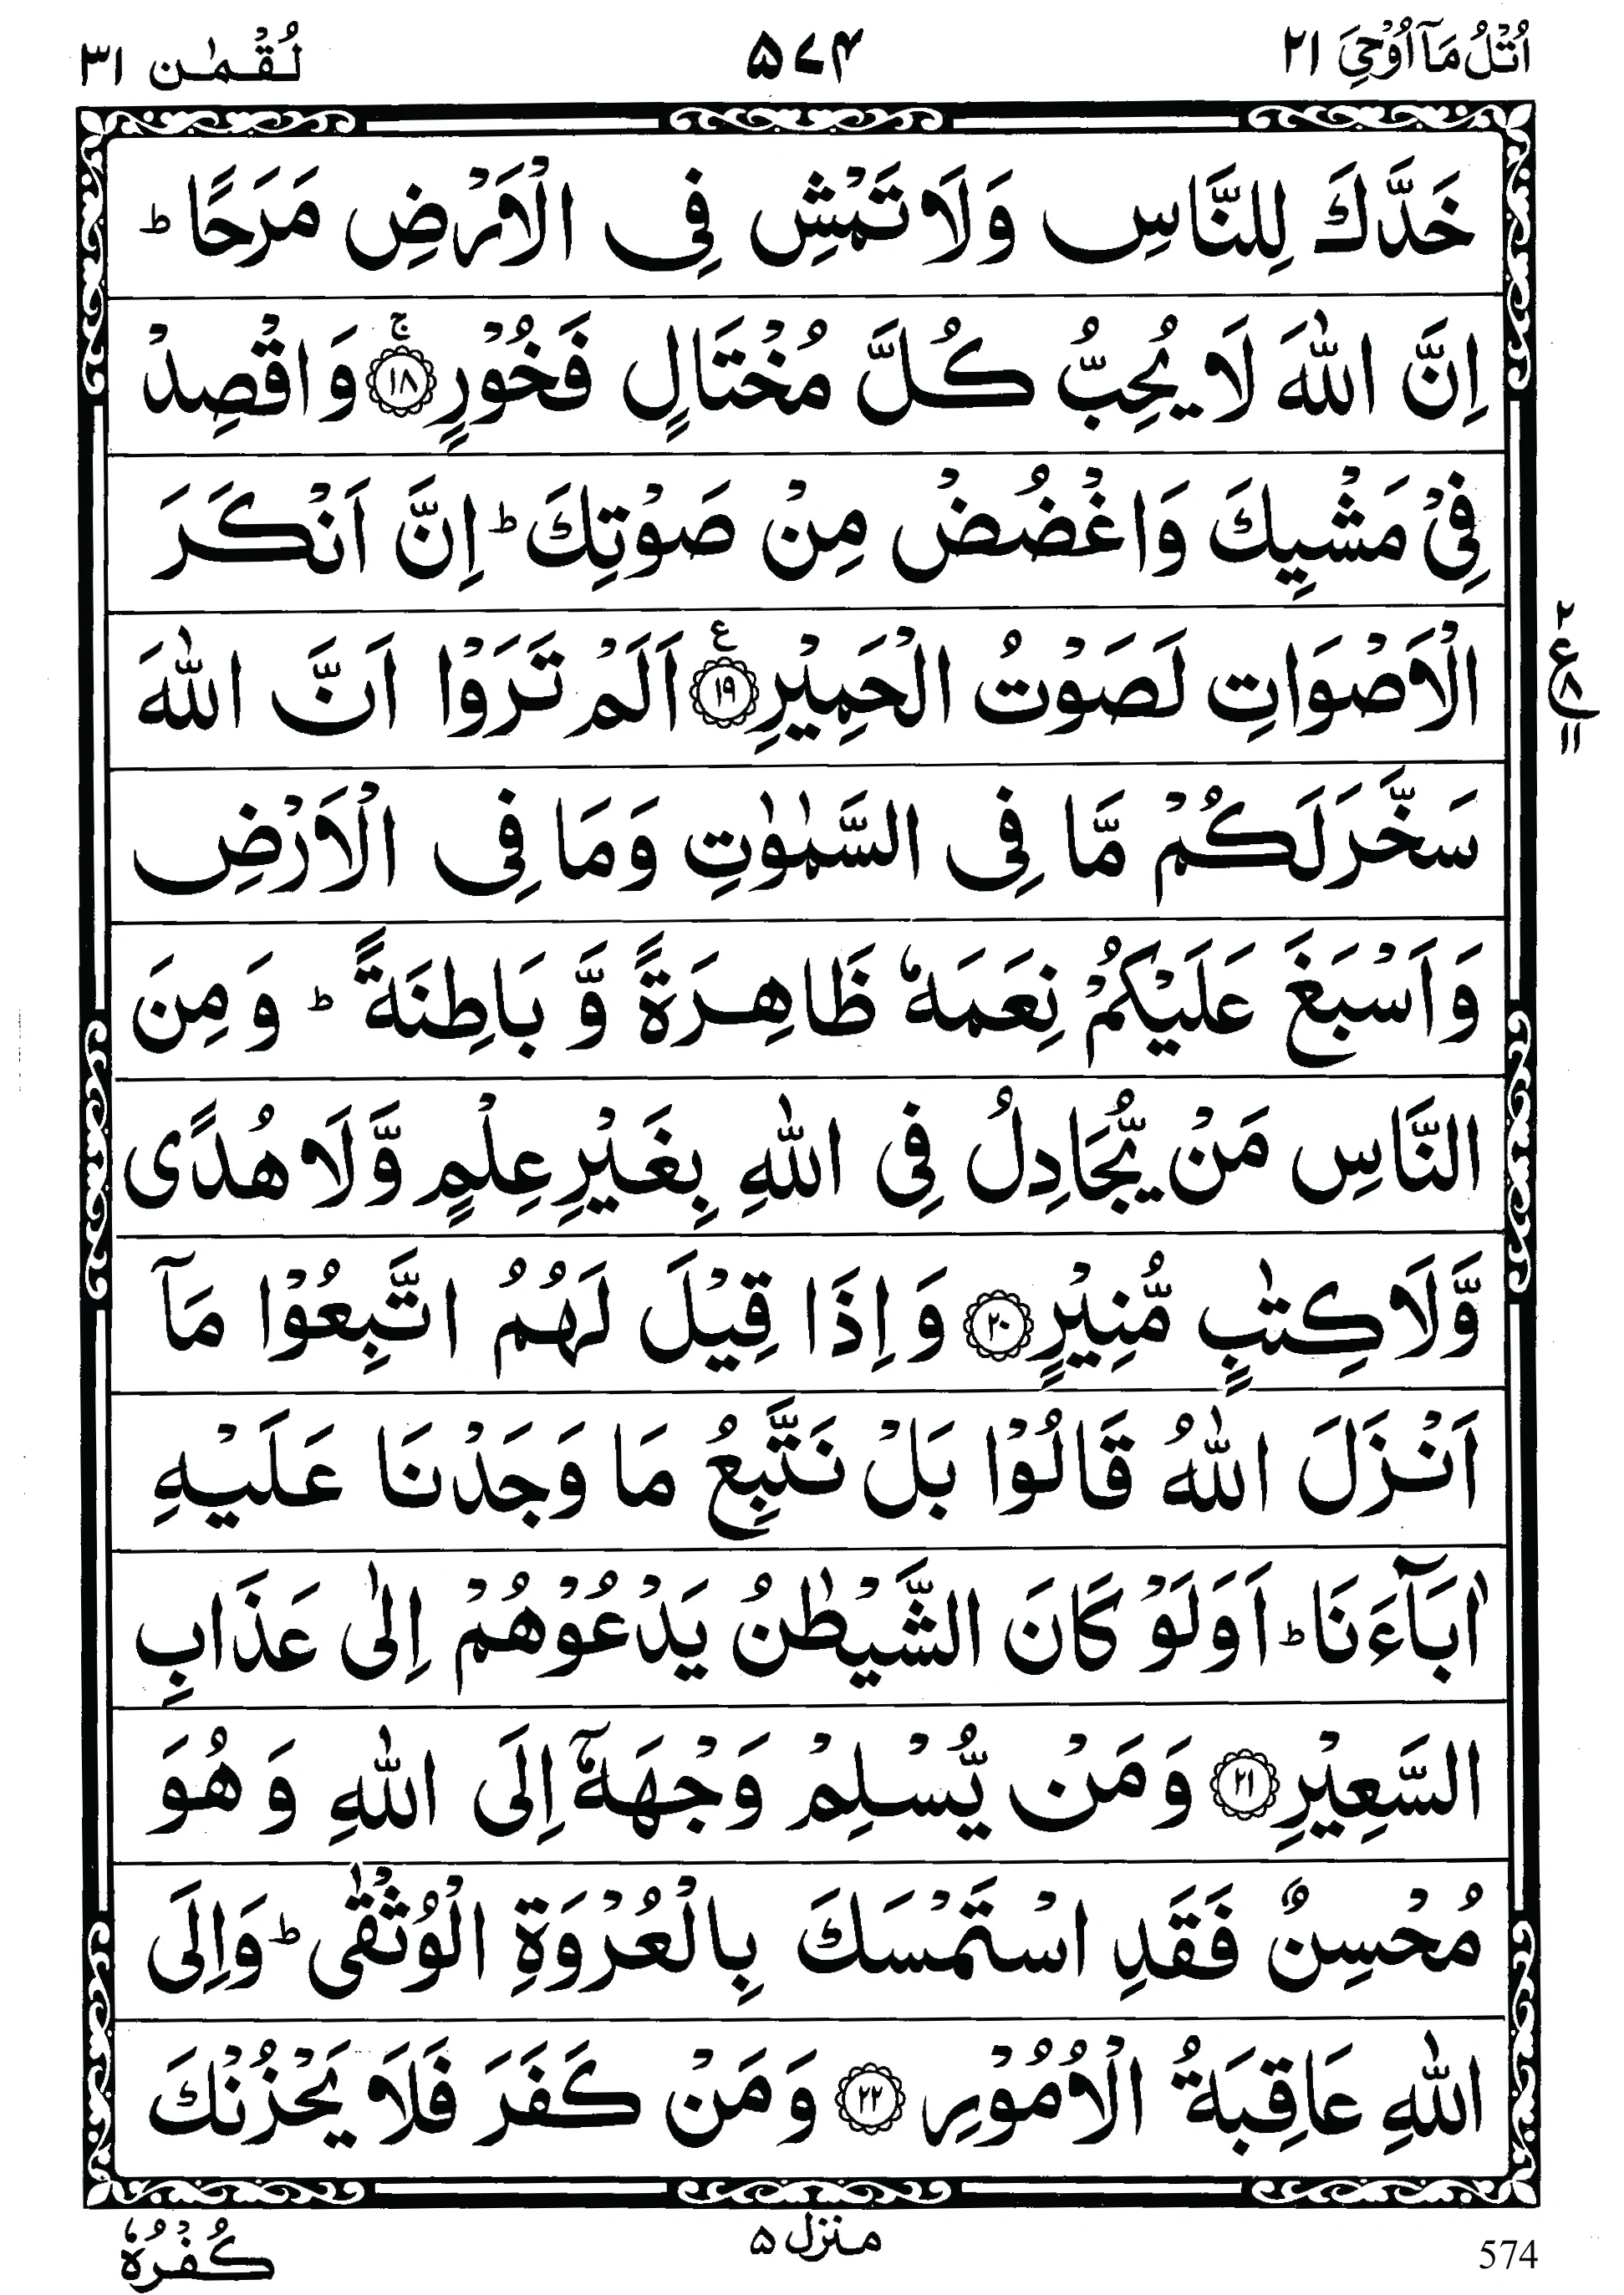 اُتْلُ مَآ اُوْحِيَ ٢١
۵۷۴
لُقْمٰن ٣١
خَدَّكَ لِلنَّاسِ وَلَا تَمْشِ فِى الْاَرْضِ مَرَحًا ؕ
اِنَّ اللّٰهَ لَا يُحِبُّ كُلَّ مُخْتَالٍ فَخُوْرٍ ۚ ﴿١٨﴾ وَاقْصِدْ
فِيْ مَشْيِكَ وَاغْضُضْ مِنْ صَوْتِكَ ؕ اِنَّ اَنْكَرَ
الْاَصْوَاتِ لَصَوْتُ الْحَمِيْرِ ﴿١٩﴾ ع اَلَمْ تَرَوْا اَنَّ اللّٰهَ
٢
ع
٨
١١
سَخَّرَ لَكُمْ مَّا فِى السَّمٰوٰتِ وَمَا فِى الْاَرْضِ
وَاَسْبَغَ عَلَيْكُمْ نِعَمَهٗ ظَاهِرَةً وَّ بَاطِنَةً ؕ وَمِنَ
النَّاسِ مَنْ يُّجَادِلُ فِى اللّٰهِ بِغَيْرِ عِلْمٍ وَّلَا هُدًى
وَّلَا كِتٰبٍ مُّنِيْرٍ ﴿٢٠﴾ وَاِذَا قِيْلَ لَهُمُ اتَّبِعُوْا مَآ
اَنْزَلَ اللّٰهُ قَالُوْا بَلْ نَتَّبِعُ مَا وَجَدْنَا عَلَيْهِ
اٰبَآءَنَا ؕ اَوَلَوْ كَانَ الشَّيْطٰنُ يَدْعُوْهُمْ اِلٰى عَذَابِ
السَّعِيْرِ ﴿٢١﴾ وَمَنْ يُّسْلِمْ وَجْهَهٗٓ اِلَى اللّٰهِ وَهُوَ
مُحْسِنٌ فَقَدِ اسْتَمْسَكَ بِالْعُرْوَةِ الْوُثْقٰى ؕ وَاِلَى
اللّٰهِ عَاقِبَةُ الْاُمُوْرِ ﴿٢٢﴾ وَمَنْ كَفَرَ فَلَا يَحْزُنْكَ
574
منزل ۵
كُفْرُهٗ